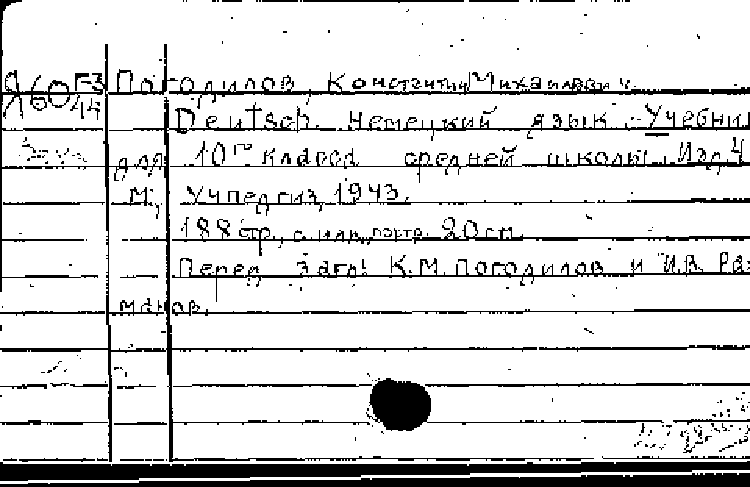 Я60 Г3/44 Погодилов, Константин Михайлович.
Deutsch. Немецкий язык. Учебни
для 10го класса средней школы. Изд. 4
М., Учпедгиз, 1943.
188 стр., с илл., портр. 20 см.
Перед загл: К.М. Погодилов и И.В. Рах
манов.